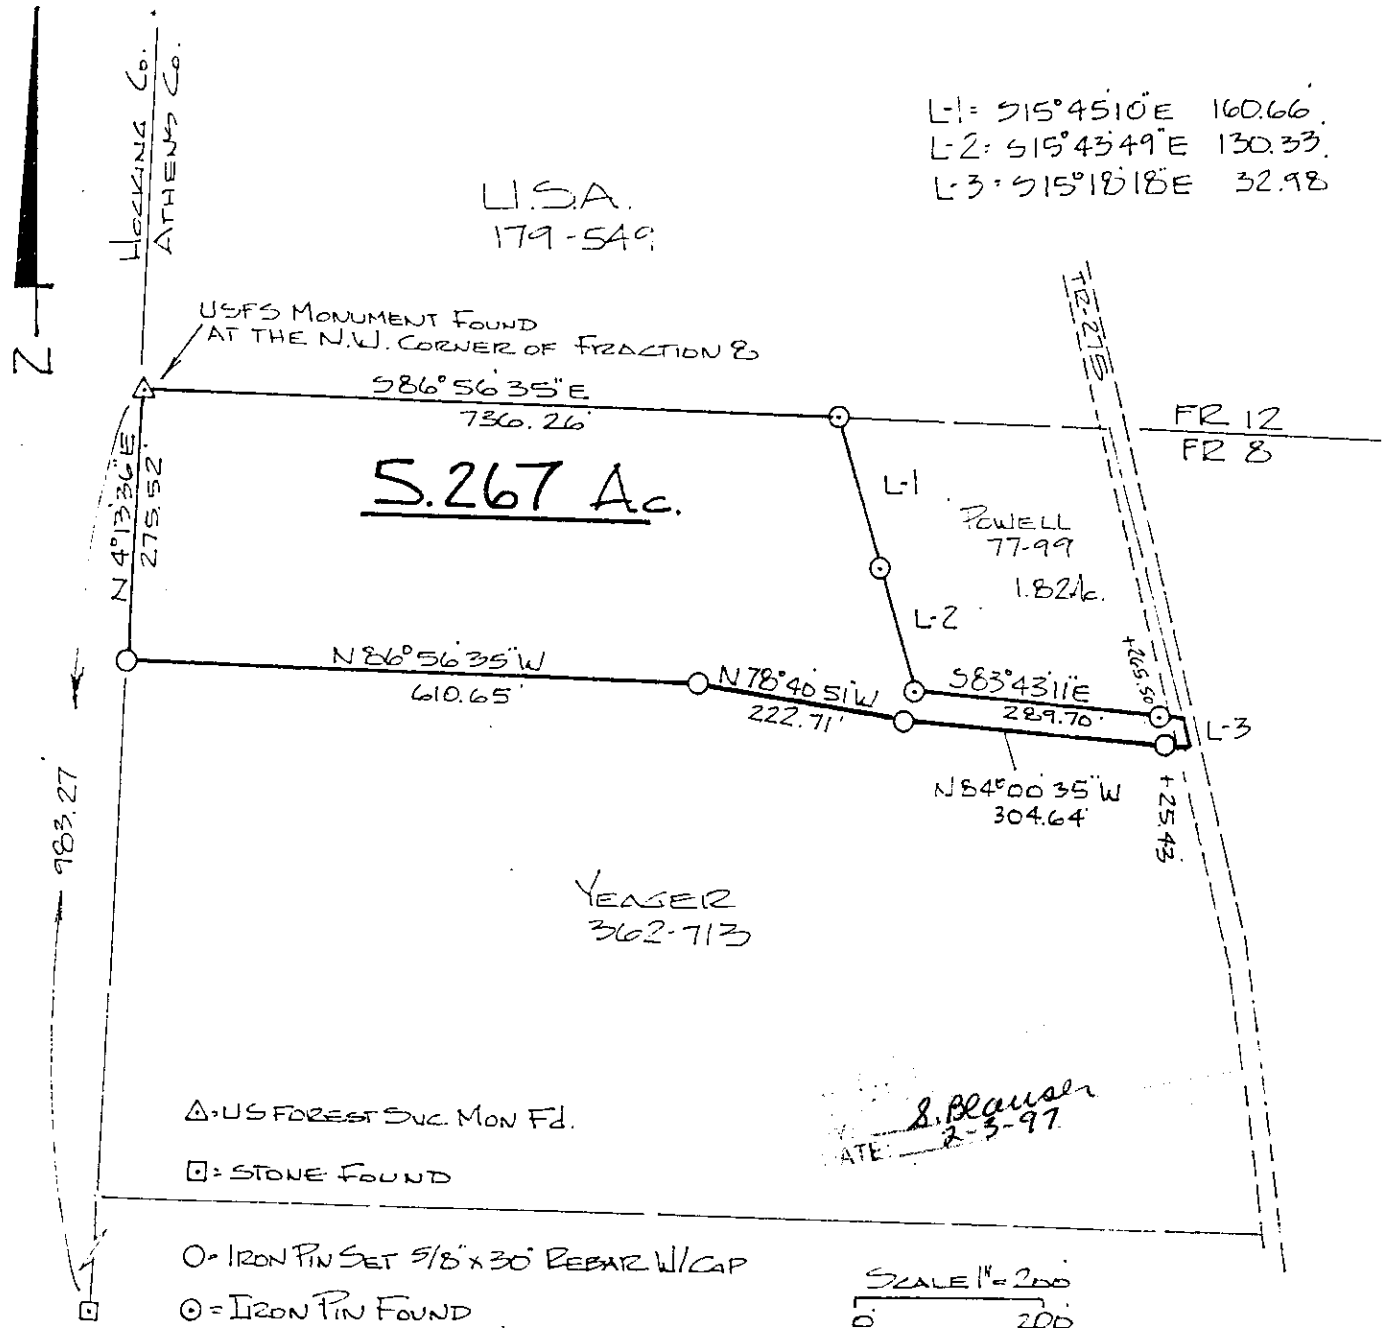 HOCKING Co.
ATHENS Co.
L-1= S15°45'10"E 160.66'
L-2= S15°43'49"E 130.33'
L-3= S15°18'18"E 32.98
U.S.A.
179-549
Z
USFS MONUMENT FOUND
AT THE N.W. CORNER OF FRACTION 8
TR-275
S86°56'35"E
736.26'
FR 12
FR 8
5.267 Ac.
L-1
POWELL
77-99
1.82Ac.
N4°13'36"E
275.52'
L-2
N86°56'35"W
610.65'
N78°40'51"W
222.71'
S83°43'11"E
289.70'
+265.50'
L-3
N84°00'35"W
304.64'
+25.43'
983.27'
YEAGER
362-713
S. Blauser
ATE: 2-3-97
△=US FOREST SVC. MON Fd.
⊡=STONE FOUND
O=IRON PIN SET 5/8"x30" REBAR W/CAP
⊙=IRON PIN FOUND
SCALE 1"=200'
0' 200'